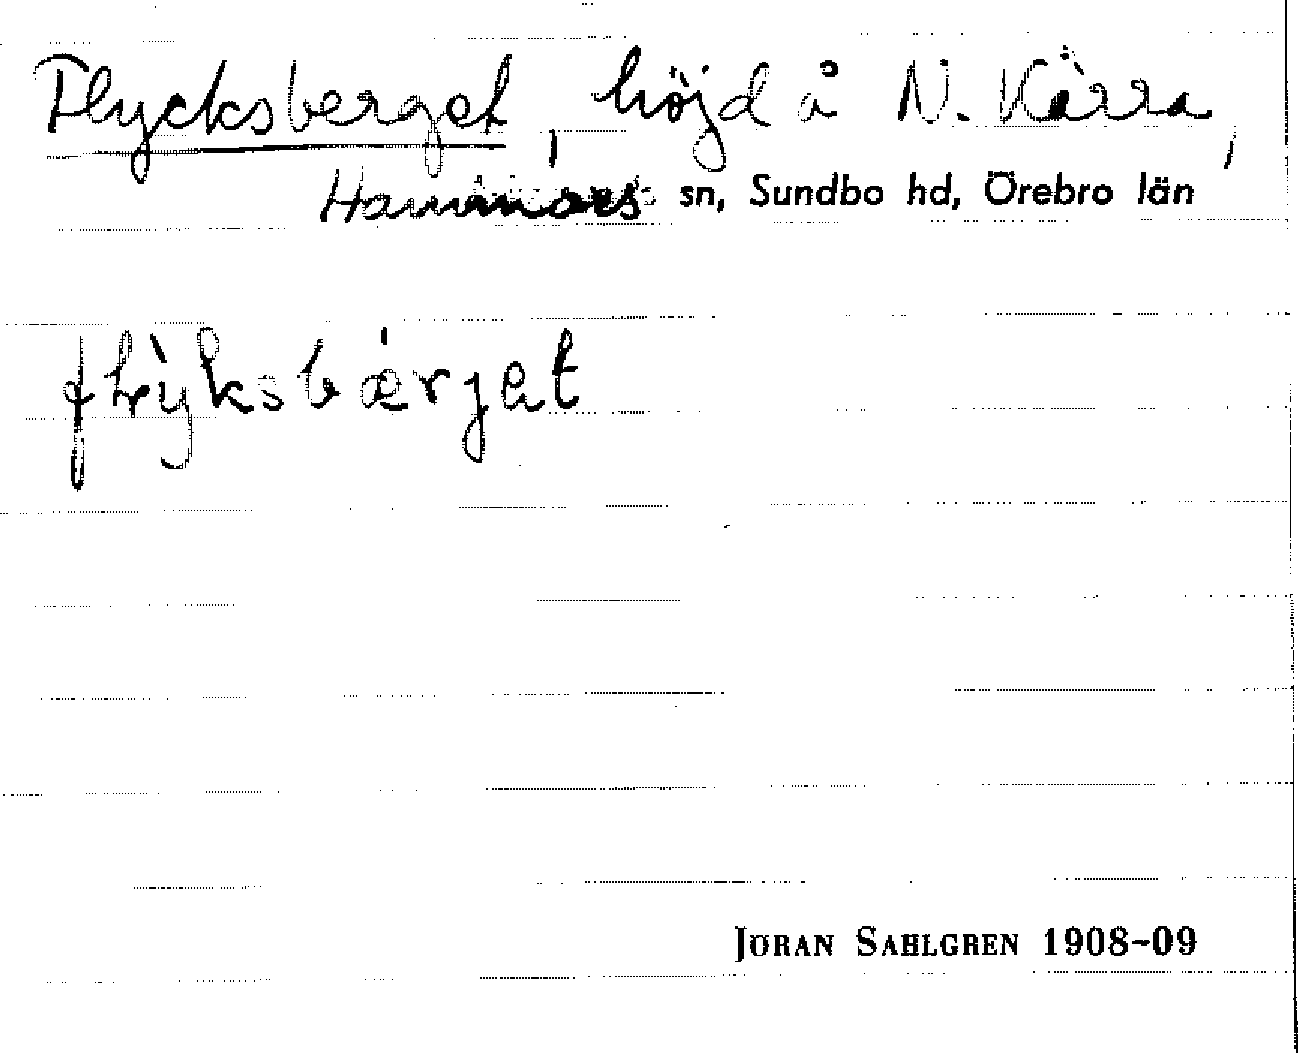 Flycksberget, höjd å N. Kärra,
Hammars sn, Sundbo hd, Örebro län
flỳksbærjet
JÖRAN SAHLGREN 1908-09